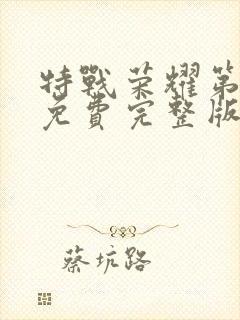 特戰荣耀第
免費完整版
蔡坑路